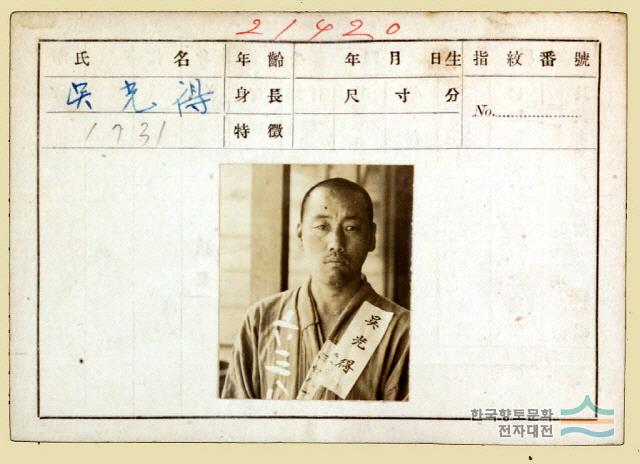 21420
氏 名 年齡 年 月 日生 指紋番號
吳光得 身長 尺 寸 分 No.
1731 特徵
吳光得
한국향토문화
전자대전